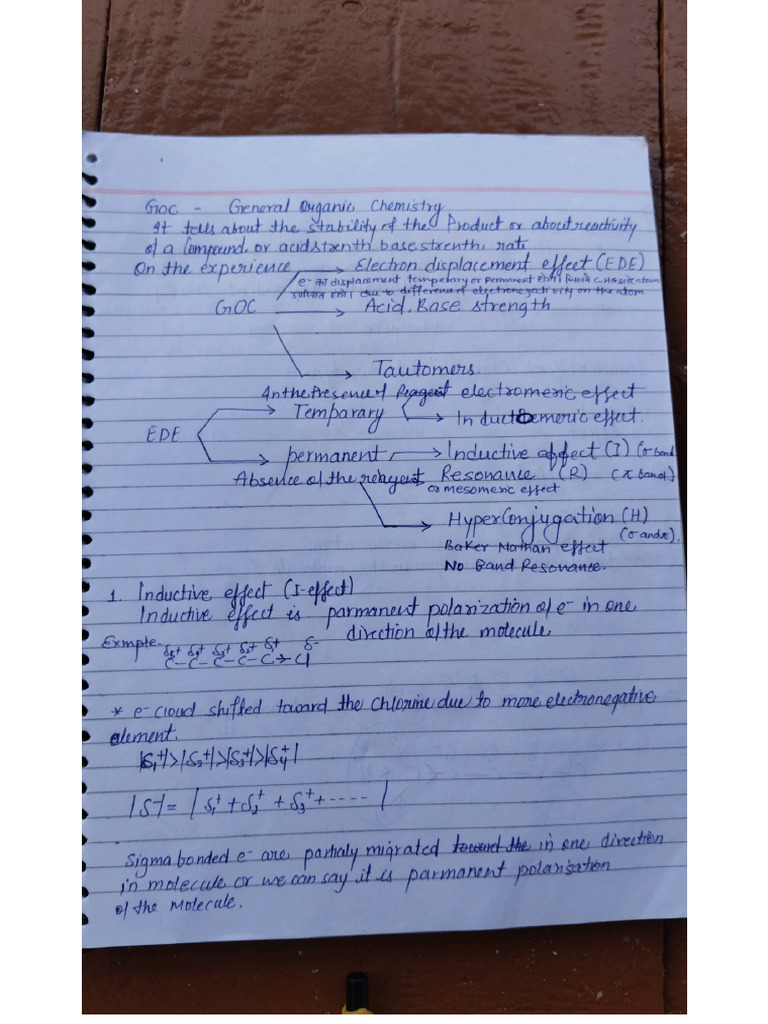 GOC - General Organic Chemistry
It tells about the stability of the Product or about reactivity
of a Compound, or acid strenth base strenth, rate
On the experience → Electron displacement effect (EDE)
e- का displacement temperary or permanent होगा
due to difference of electronegativity on the atom
GOC → Acid, Base strength
→ Tautomers.
In the Presence of Reagent electromeric effect
Temparary → Inductomeric effect.
EDE
permanent → Inductive effect (I) (σ-bond
Absence of the reagent Resonance (R) (π bond)
or mesomeric effect
→ HyperConjugation (H)
(σ and π).
Baker Nathan effect
No Band Resonance.
1. Inductive effect (I-effect)
Inductive effect is parmanent polarization of e- in one
direction of the molecule
Exmple- δ5+ δ4+ δ3+ δ2+ δ1+ δ-
C-C-C-C-C→Cl
* e- cloud shifted toward the Chlorine due to more electronegative
element.
|δ1+|>|δ2+|>|δ3+|>|δ4+|
|δ-| = |δ1+ + δ2+ + δ3+ + ---- |
Sigma bonded e- are partialy migrated toward the in one direction
in molecule or we can say it is parmanent polarisation
of the molecule.